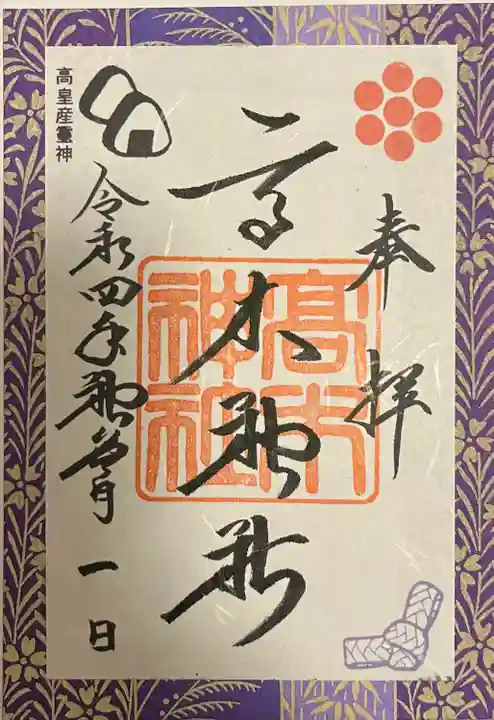 奉拝
高木神社
高木神社
令和四年神無月一日
高皇産霊神